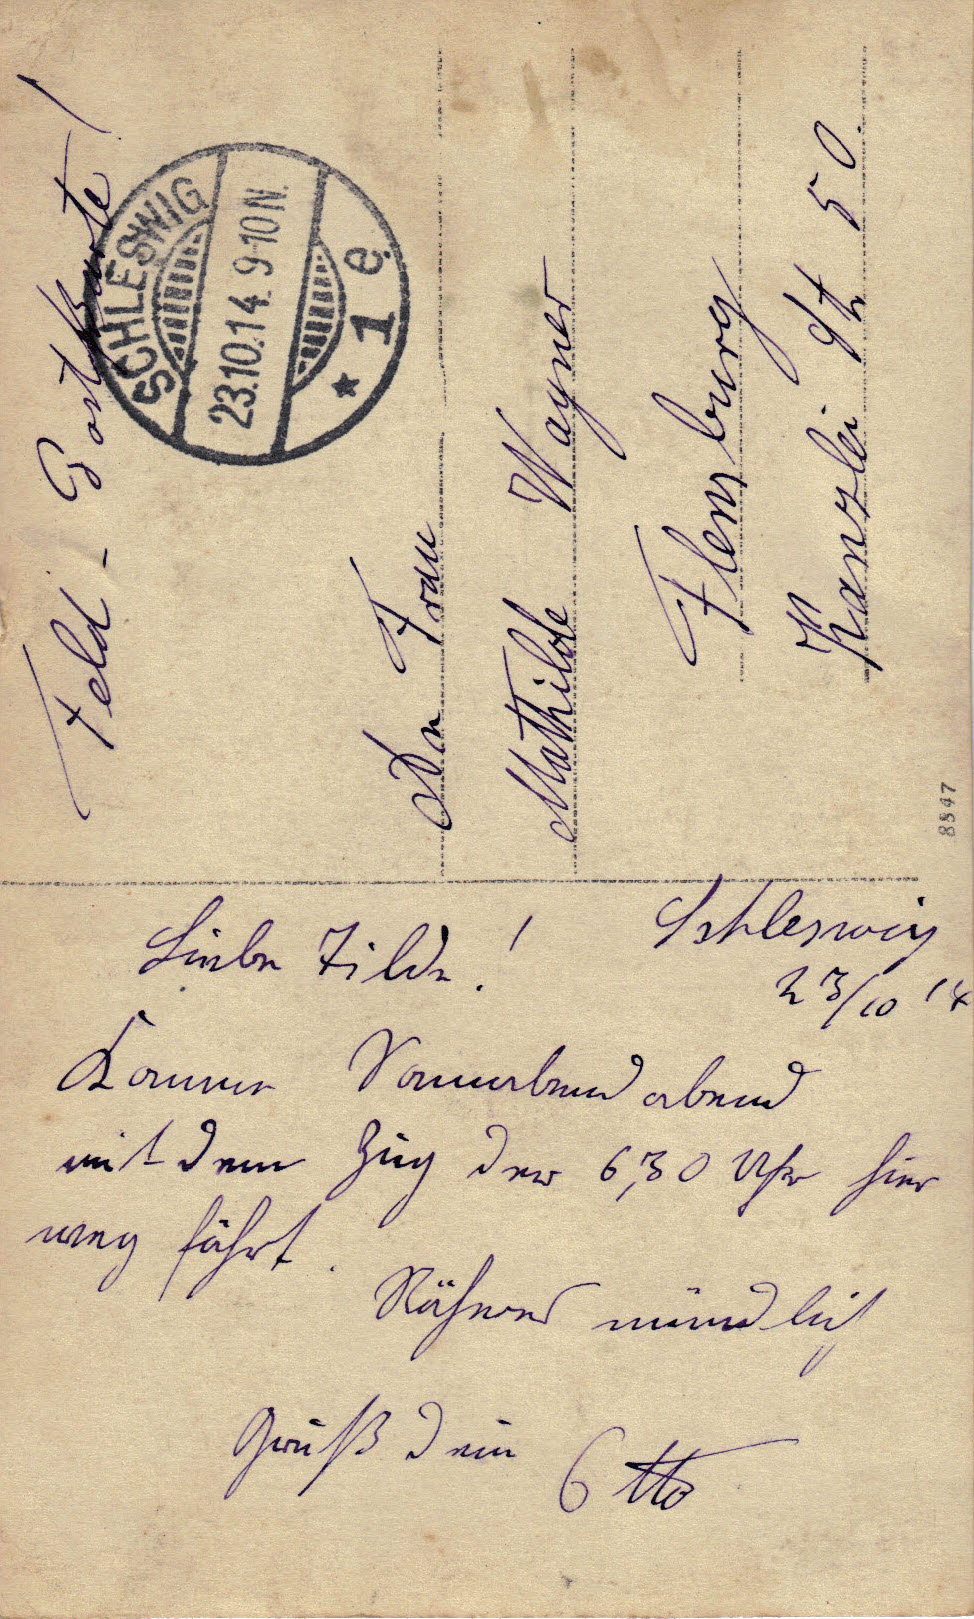 Feld-Postkarte!
SCHLESWIG
23.10.14. 9-10N.
* 1 e.
An Frau
Mathilde Wagner
Flensburg
Kanzleistr 50.
8547
Schleswig
23/10 14
Liebe Tilde!
Komme Sonnabend abend
mit dem Zug der 6,30 Uhr hier
weg fährt.
Näheres mündlich
Gruß dein Otto